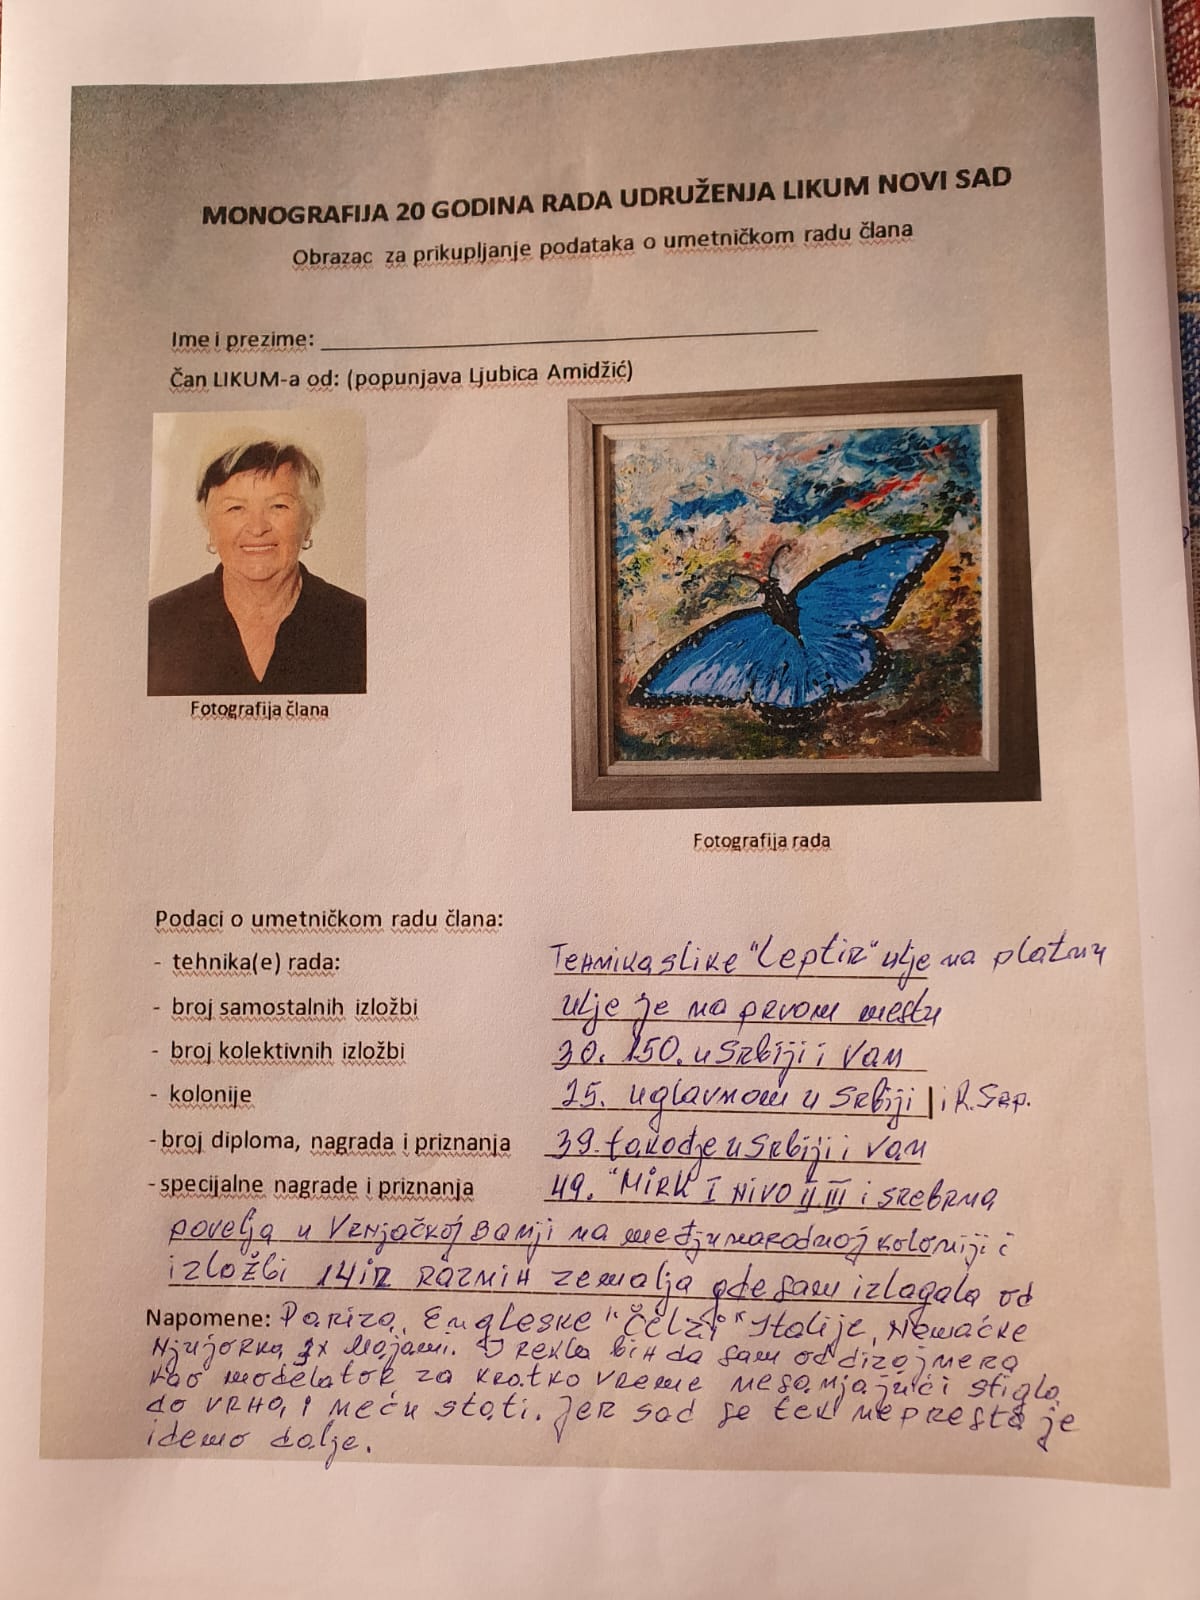 MONOGRAFIJA 20 GODINA RADA UDRUŽENJA LIKUM NOVI SAD
Obrazac za prikupljanje podataka o umetničkom radu člana
Ime i prezime:
Čan LIKUM-a od: (popunjava Ljubica Amidžić)
Fotografija člana
Fotografija rada
Podaci o umetničkom radu člana:
- tehnika(e) rada: Tehnika slike "Leptir" ulje na platnu
- broj samostalnih izložbi ulje je na prvom mestu
- broj kolektivnih izložbi 30. 150. u Srbiji i van
- kolonije 25. uglavnom u Srbiji | i R. Srp.
- broj diploma, nagrada i priznanja 39. takodje u Srbiji i van
- specijalne nagrade i priznanja 49. "Mirk I nivo II III i srebrna
povelja u Vrnjačkoj Banji na medjunarodnoj koloniji i
izložbi 14 iz raznih zemalja gde sam izlagala od
Napomene: Pariza, Engleske "Čelzi" Italije, Nemačke
Njujorka, Majami. rekla bih da sam od dizajnera
kao modelator za kratko vreme stigla
do vrha i neću stati. Jer sad se tek neprestaje
idemo dalje.